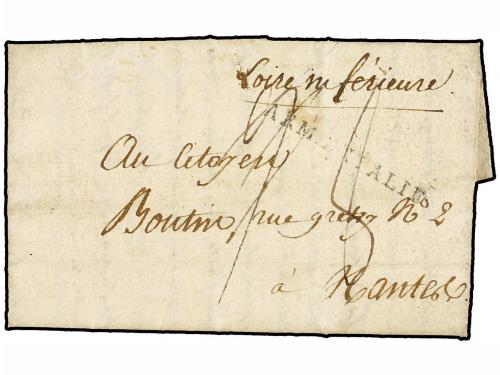 Loire inférieure
ARM. D'ITALIE
Au Citoyen
Boutin, rue gretry N.o 2
à Nantes.